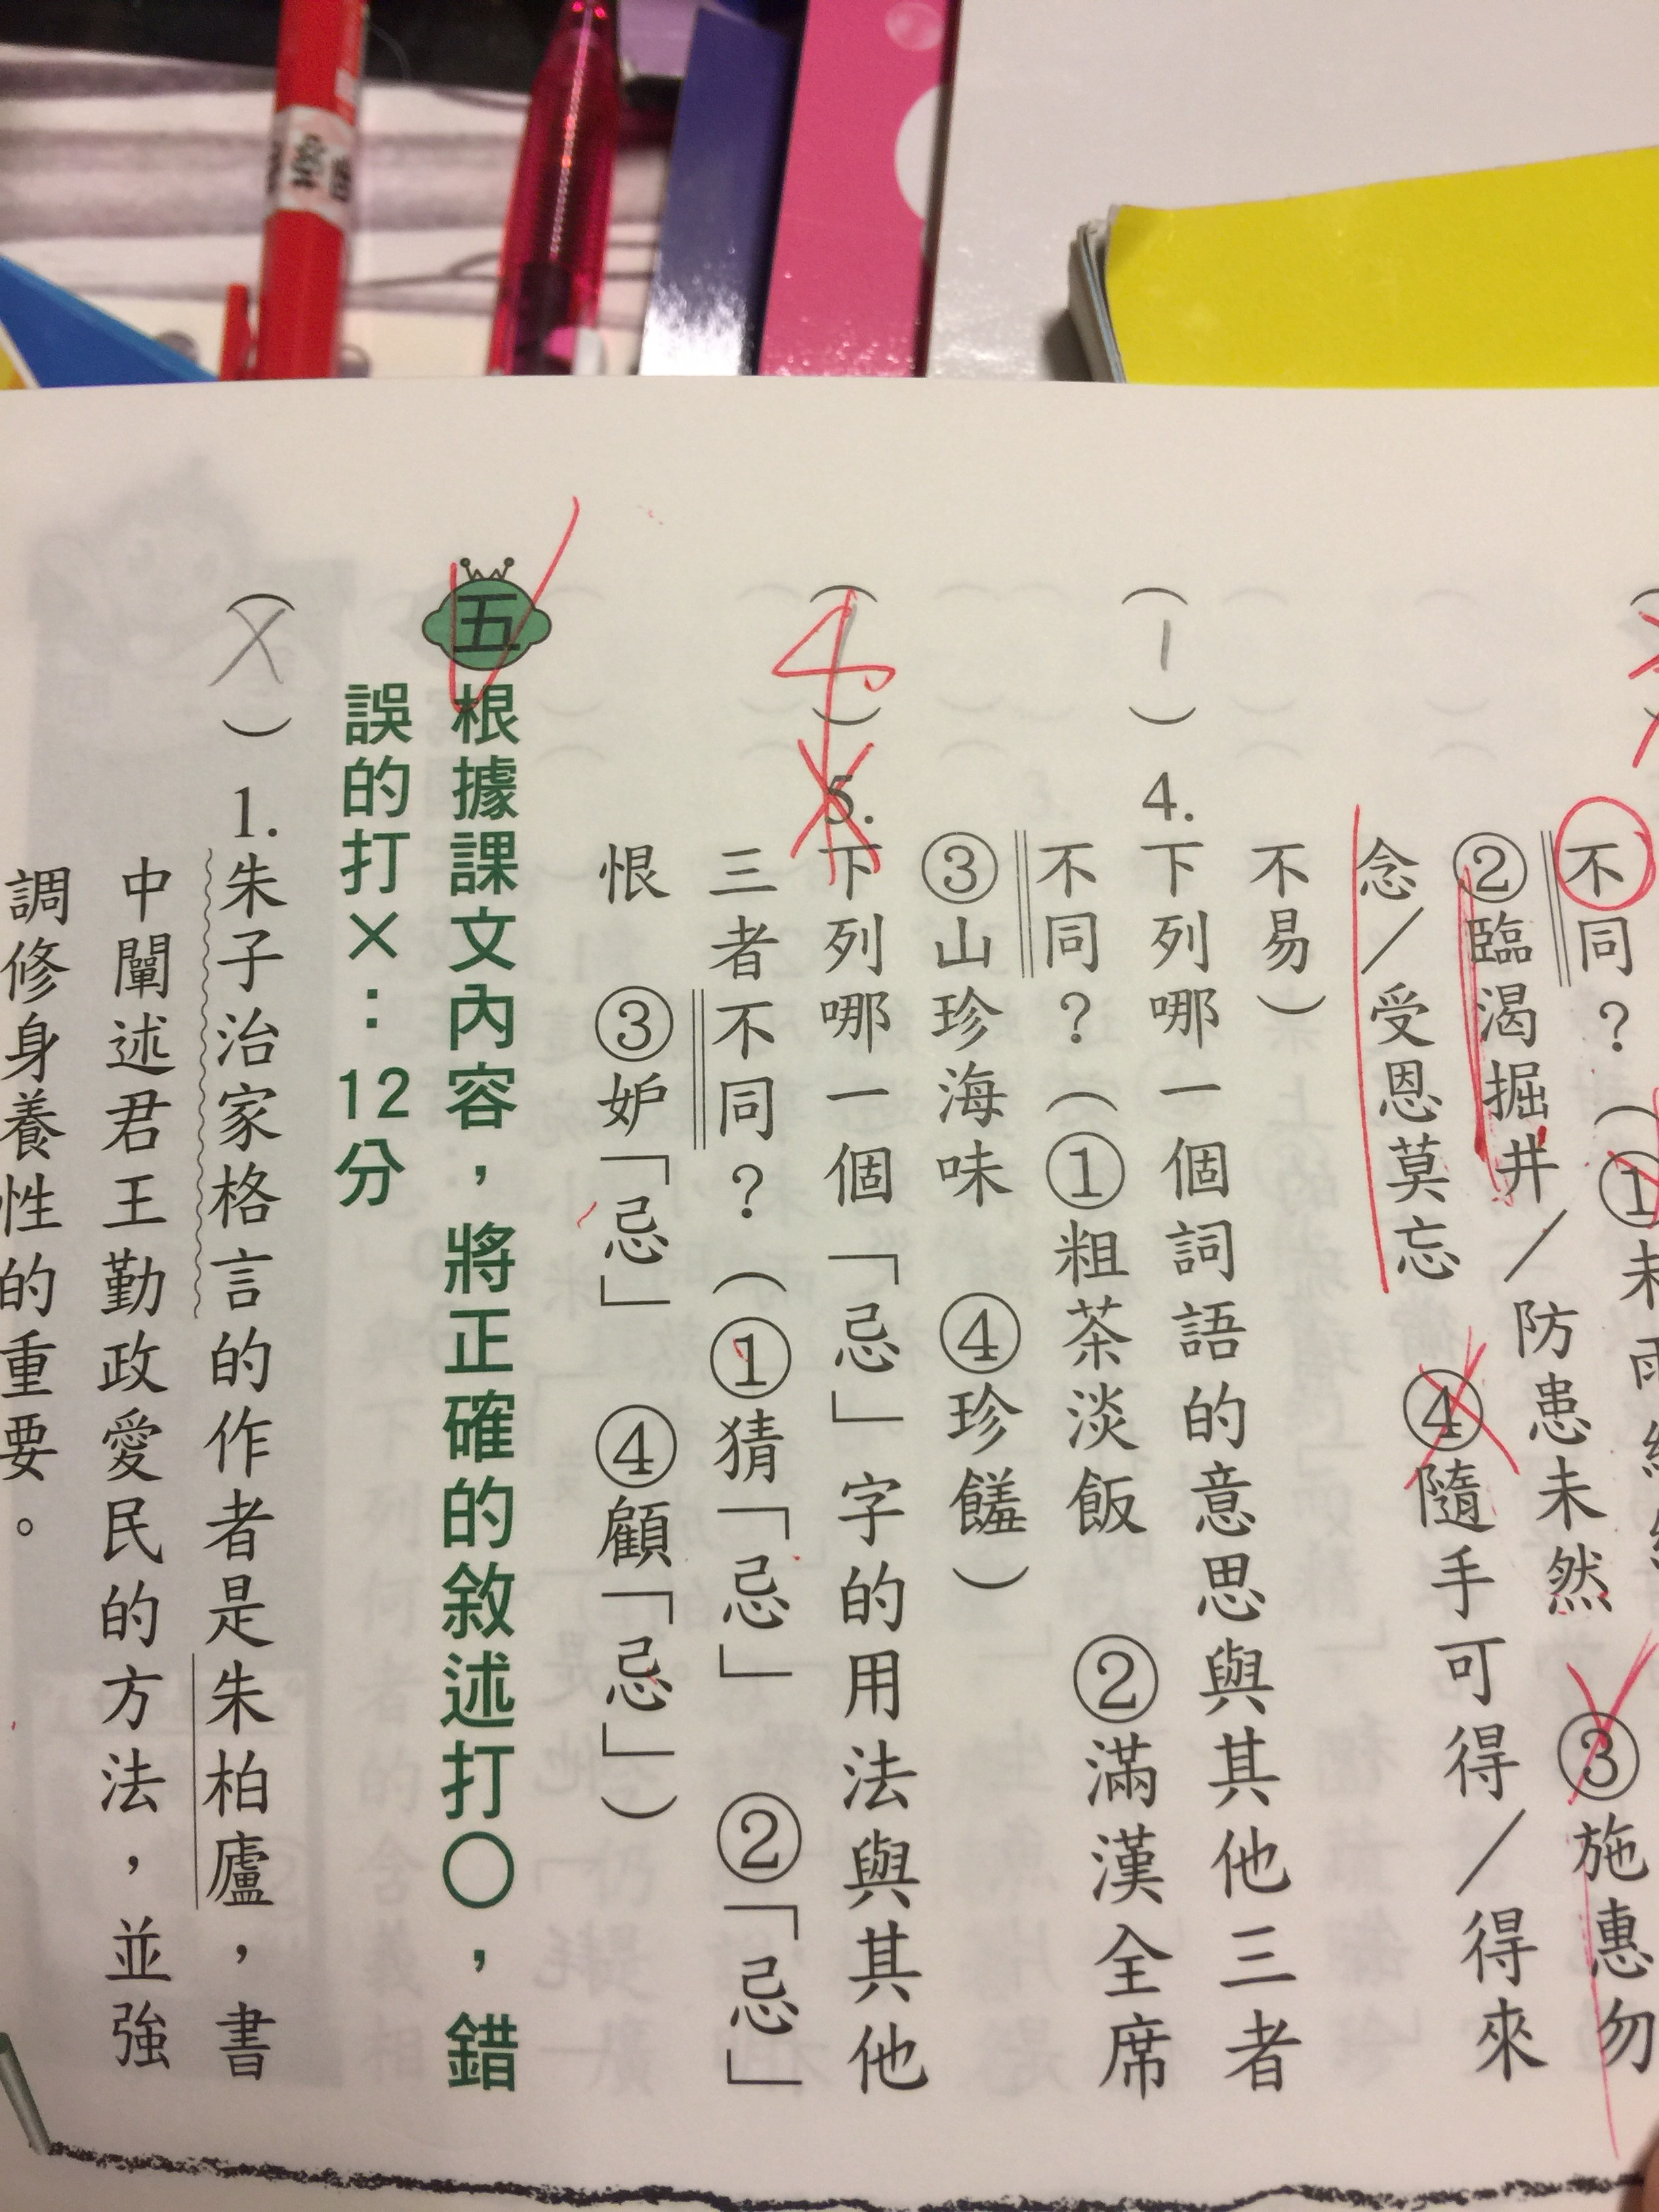 不同？（①未雨
②臨渴掘井／防患未然 ③施惠勿
念／受恩莫忘 ④隨手可得／得來
不易）
（1）4.下列哪一個詞語的意思與其他三者
不同？（①粗茶淡飯 ②滿漢全席
③山珍海味 ④珍饈）
（4）5.下列哪一個「忌」字的用法與其他
三者不同？（①猜「忌」 ②「忌」
恨 ③妒「忌」 ④顧「忌」）
五 根據課文內容，將正確的敘述打○，錯
誤的打×：12分
（X）1.朱子治家格言的作者是朱柏廬，書
中闡述君王勤政愛民的方法，並強
調修身養性的重要。